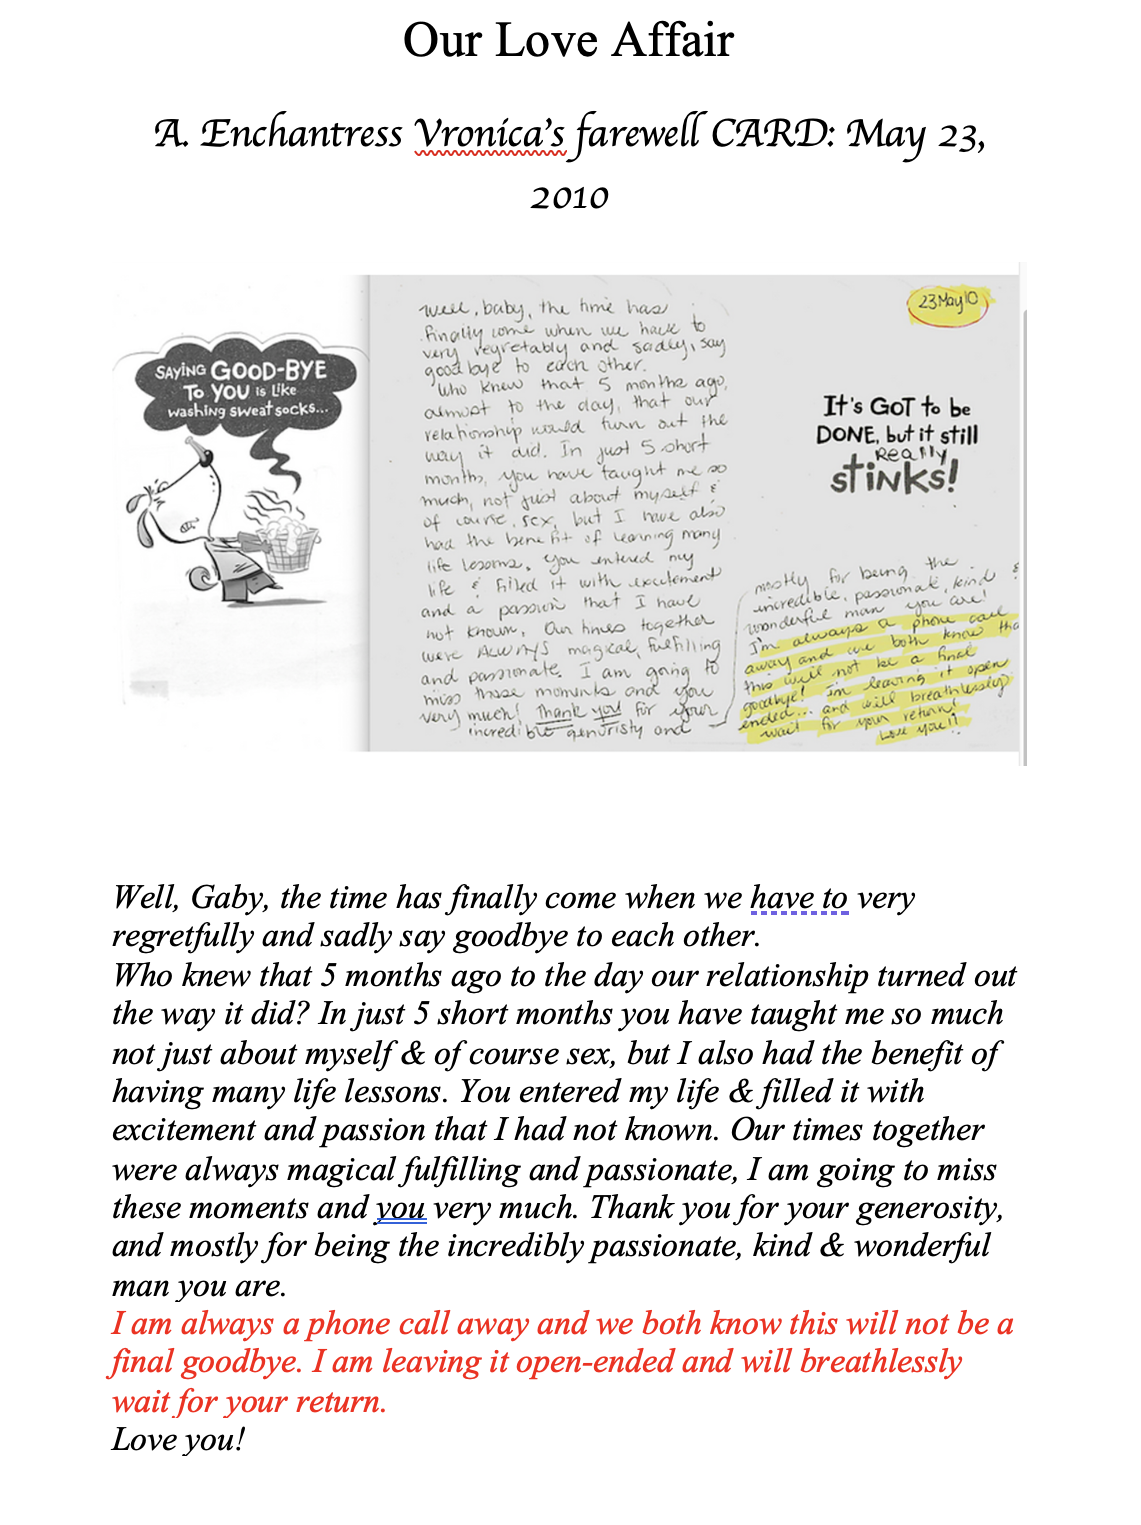 Our Love Affair
A. Enchantress Vronica's farewell CARD: May 23,
2010
SAYING GOOD-BYE
TO YOU is like
washing sweat socks...
well, baby, the time has
finally come when we have to
very regretably and sadly, say
good bye to each other.
Who knew that 5 months ago,
almost to the day, that our
relationship would turn out the
way it did. In just 5 short
months, you have taught me so
much, not just about myself &
of course, sex, but I have also
had the benefit of learning many
life lessons. You entered my
life & filled it with excitement
and a passion that I have
not known. Our times together
were ALWAYS magical, fulfilling
and passionate. I am going to
miss those moments and you
very much! Thank you for your
incredible generosity and
23 May 10
IT'S GOT to be
DONE, but it still
Really
stinks!
mostly for being the
incredible, passionate, kind &
wonderful man you are!
I'm always a phone call
away and we both know tha
this will not be a final
goodbye! I'm leaving it open
ended... and will breathlessly
wait for your return!
Love you!!
Well, Gaby, the time has finally come when we have to very
regretfully and sadly say goodbye to each other.
Who knew that 5 months ago to the day our relationship turned out
the way it did? In just 5 short months you have taught me so much
not just about myself & of course sex, but I also had the benefit of
having many life lessons. You entered my life & filled it with
excitement and passion that I had not known. Our times together
were always magical fulfilling and passionate, I am going to miss
these moments and you very much. Thank you for your generosity,
and mostly for being the incredibly passionate, kind & wonderful
man you are.
I am always a phone call away and we both know this will not be a
final goodbye. I am leaving it open-ended and will breathlessly
wait for your return.
Love you!